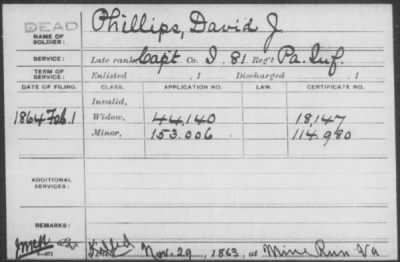 DEAD
NAME OF SOLDIER: Phillips, David J
SERVICE: Late rank Capt Co. I. 81 Reg't Pa. Inf.
TERM OF SERVICE: Enlisted , 1 Discharged , 1
DATE OF FILING. CLASS. APPLICATION NO. LAW. CERTIFICATE NO.
Invalid,
1864 Feb. 1 Widow, 44,140 18,147
Minor, 153.006 114.980
ADDITIONAL SERVICES:
REMARKS:
Killed Nov. 29, 1863, at Mine Run Va